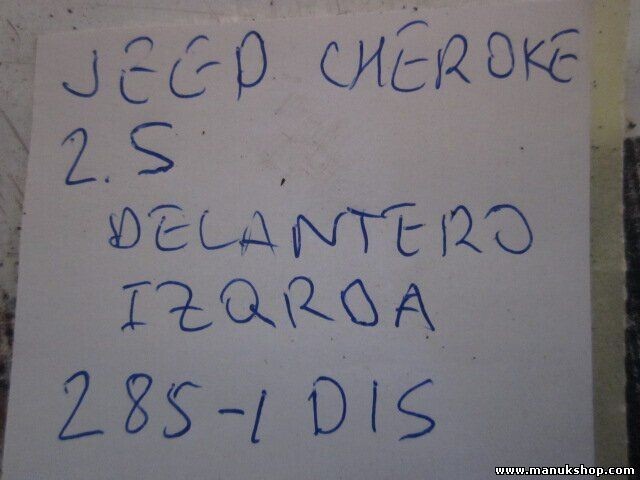 JEEP CHEROKE
2.5
DELANTERO
IZQRDA
285-1 DIS
www.manukshop.com